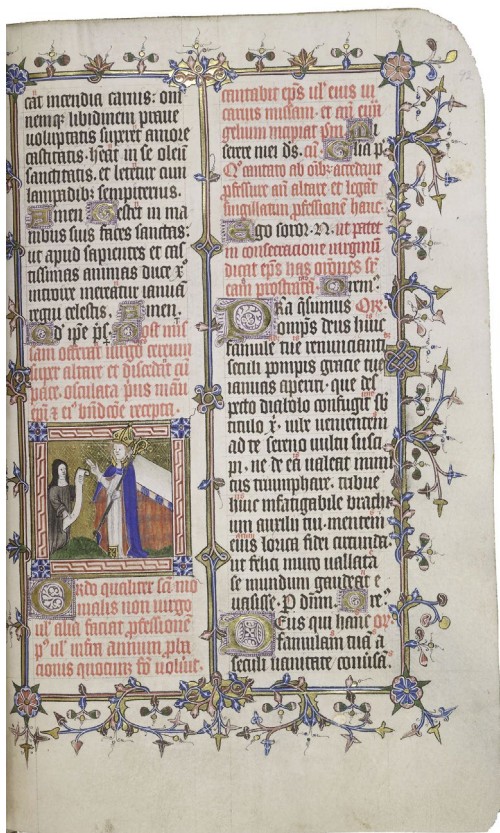 cat incendia carius: om
nemq; libidinem praue
uoluptatis superet amore
castitatis. heat in se oleu
sanctitatis. et letetur cum
lampadib; sempiternis.
Amen. Gestet in ma
nibus suis faces sanctas:
ut apud sapientes et cas
tissimas animas duce x
introire mereatur ianua
regni celestis. Amen.
Qd ipe ps. Post mis
sam offerat uirgo cereum
super altare et discedit cu
pace. osculata prius manu
epi et ei bndcoe recepta.
Ordo qualiter sci mo
nialis non uirgo
ul alia faciat professione
p ul infra annum. pba
cionis quociens fo uoluit.
cantabit eps ul eius ui
carius missam. et an euu
gelium incipiat pm. Mi
serere mei ds. cu Gla p.
Q cantato ab oib; accedat
pfessure an altare et legat
sincillatim professione hanc.
Ego soror .N. ut patet
in consecracione uirginu
dicat eps has orones sr
eam prostrata. Orem.
Pra qsumus Ore.
omps deus huic
famule tue renuncianti
seculi pompis gracie tue
ianuas aperiri. que des
pecto diabolo confugit sb
titulo x. iube uenientem
ad te sereno uultu susci
pi. ne de ea ualeat inimi
cus triumphare. tribue
huic infatigabile brachi
um auxilii tui. mentem
eius lorica fidei circumda.
ut felici muro uallata
se mundum gaudeat e
uasisse. P dnm. Ore
Deus qui hanc or
famulam tua a
seculi uanitate conuisa.